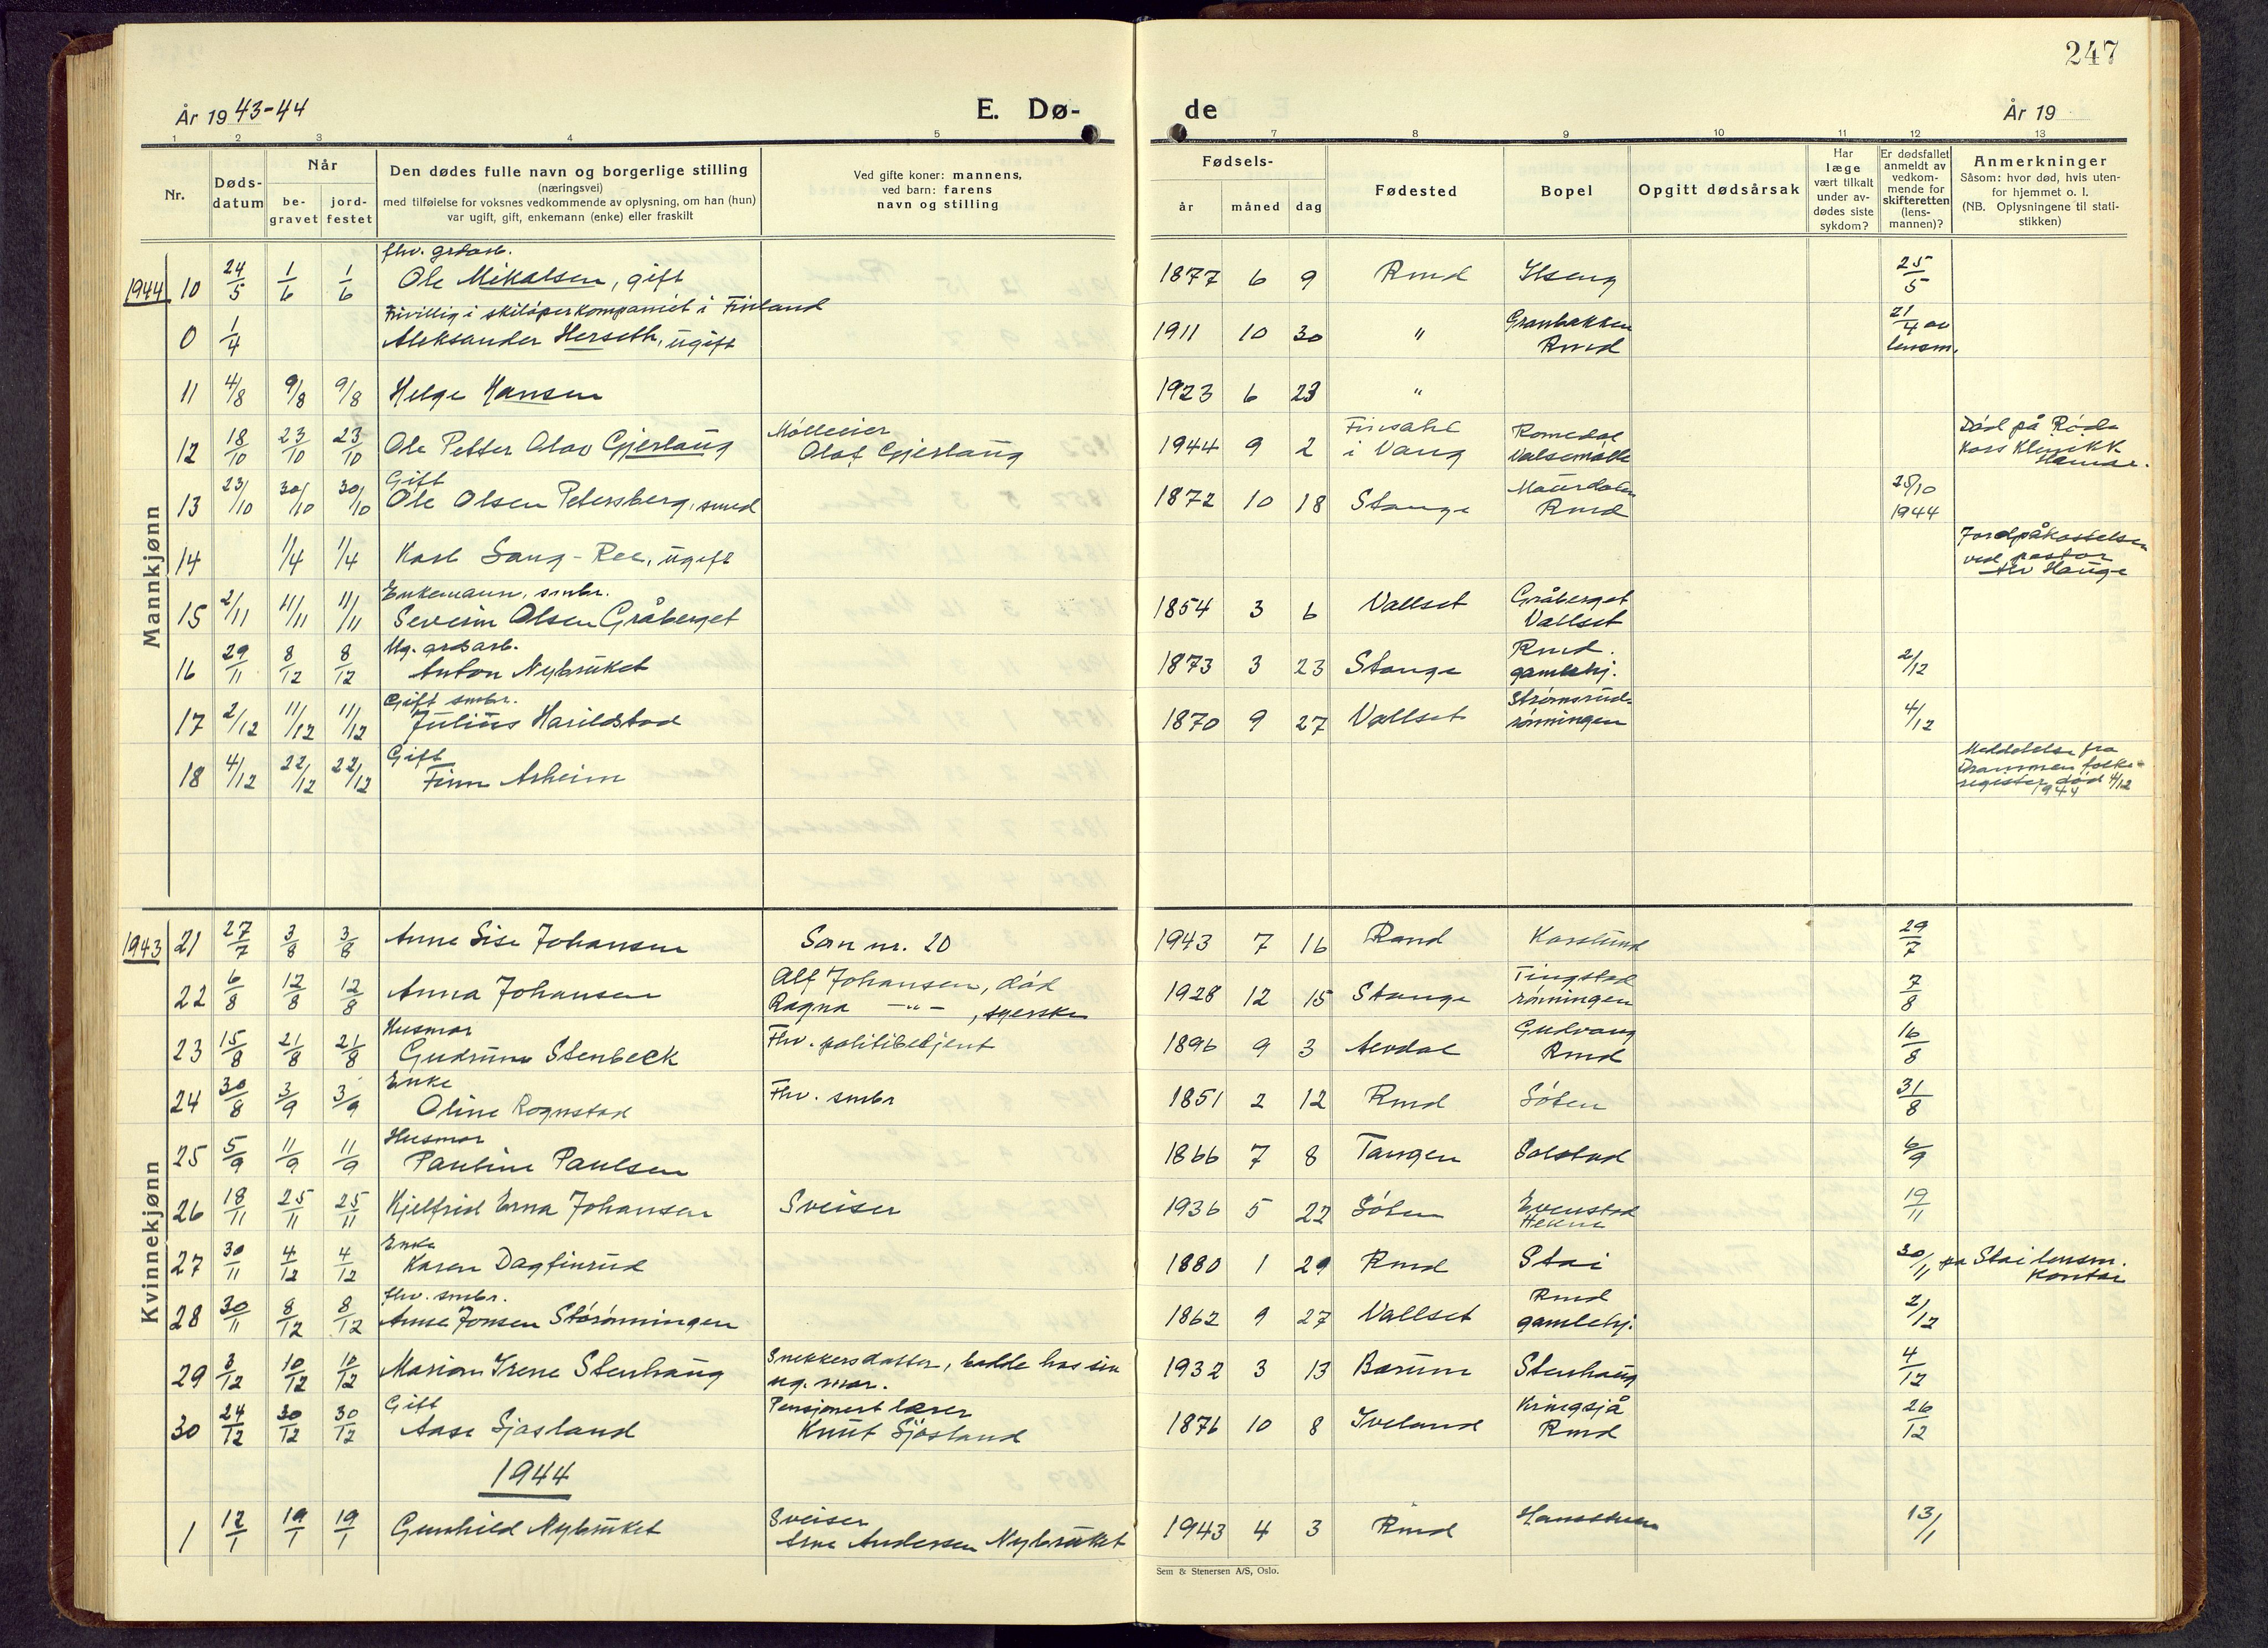 247
År 1943-44
E. Dø-
de
År 19
1 2 3 4 5 7 8 9 10 11 12 13
Nr.
Døds-
datum
Når
be-
gravet
jord-
festet
Den dødes fulle navn og borgerlige stilling
(næringsvei)
med tilføielse for voksnes vedkommende av oplysning, om han (hun)
var ugift, gift, enkemann (enke) eller fraskilt
Ved gifte koner: mannens,
ved barn: farens
navn og stilling
Fødsels-
år måned dag
Fødested
Bopel
Opgitt dødsårsak
Har
læge
vært tilkalt
under av-
dødes siste
sykdom?
Er dødsfallet
anmeldt av
vedkom-
mende for
skifteretten
(lens-
mannen)?
Anmerkninger
Såsom: hvor død, hvis uten-
for hjemmet o. l.
(NB. Oplysningene til stati-
stikken)
Mannkjønn
fhv. grdarb.
1944 10 24/5 1/6 1/6 Ole Mikalsen, gift 1877 6 9 Rmd Ilseng 25/5
Frivillig i skiløperkompaniet i Finland
0 1/4 Aleksander Herseth, ugift 1911 10 30 " Granbakken Rmd 21/4 av lensm.
11 4/8 9/8 9/8 Helge Hansen 1923 6 23 "
12 18/10 23/10 23/10 Ole Petter Olav Gjerlaug Mølleeier Olaf Gjerlaug 1944 9 2 i Vang Romedal Valsemølle Død på Røde Kors Klinikk Hamar.
Gift
13 23/10 30/10 30/10 Ole Olsen Petersberg, smed 1872 10 18 Stange Rmd 25/10 1944
14 1/4 1/4 Karl Sang-Ree, ugift Jordpåkastelsen ved pastor Hauge
Enkemann, smbr.
15 2/11 11/11 11/11 Severin Olsen Gråberget 1854 3 6 Vallset Gråberget Vallset
Ug. grdsarb.
16 29/11 8/12 8/12 Anton Nybruket 1873 3 23 Stange Rmd. gamlehj. 2/12
Gift smbr.
17 2/12 11/12 11/12 Julius Harildstad 1870 9 27 Vallset Strømsrud-rønningen 4/12
Gift
18 4/12 22/12 22/12 Finn Asheim Meddelelse fra Drammen folke-register død 4/12 1944
Kvinnekjønn
1943 21 27/7 3/8 3/8 Anne Lise Johansen Som nr. 20 1943 7 16 Romd Karslund 29/7
22 6/8 12/8 12/8 Anna Johansen Alf Johansen, død Ragna -"-, syerske 1928 12 15 Stange Tingstad rønningen 7/8
Husmor
23 15/8 21/8 21/8 Gudrun Stenbeck Fhv. politibetjent 1896 9 3 Alvdal Gudvang Rmd 16/8
Enke
24 30/8 3/9 3/9 Oline Rognstad Fhv. smbr 1851 2 12 Rmd Løten 31/8
Husmor
25 5/9 11/9 11/9 Pauline Paulsen 1866 7 8 Tangen Solstad 6/9
26 18/11 25/11 25/11 Kjelfrid Erna Johansen Sveiser 1936 5 22 Løten Evenstad 19/11
Enke
27 30/11 4/12 4/12 Karen Dagfinrud 1880 1 29 Rmd Stai 30/11 på Stai lensm. kontor
fhv. smbr.
28 30/11 8/12 8/12 Anne Jonsen Størønningen 1862 9 27 Vallset Rmd gamlehj. 2/12
29 3/12 10/12 10/12 Marion Irene Stenhaug Snekkersdatter, bodde hos sin ug. mor. 1932 3 13 Bærum Stenhaug 4/12
Gift
30 24/12 30/12 30/12 Aase Sjøsland Pensjonert lærer Knut Sjøsland 1876 10 8 Iveland Kringsjå Rmd 26/12
1944
1 12/1 19/1 19/1 Gunhild Nybruket Sveiser Arne Andersen Nybruket 1943 4 3 Rmd 13/1
Sem & Stenersen A/S, Oslo.